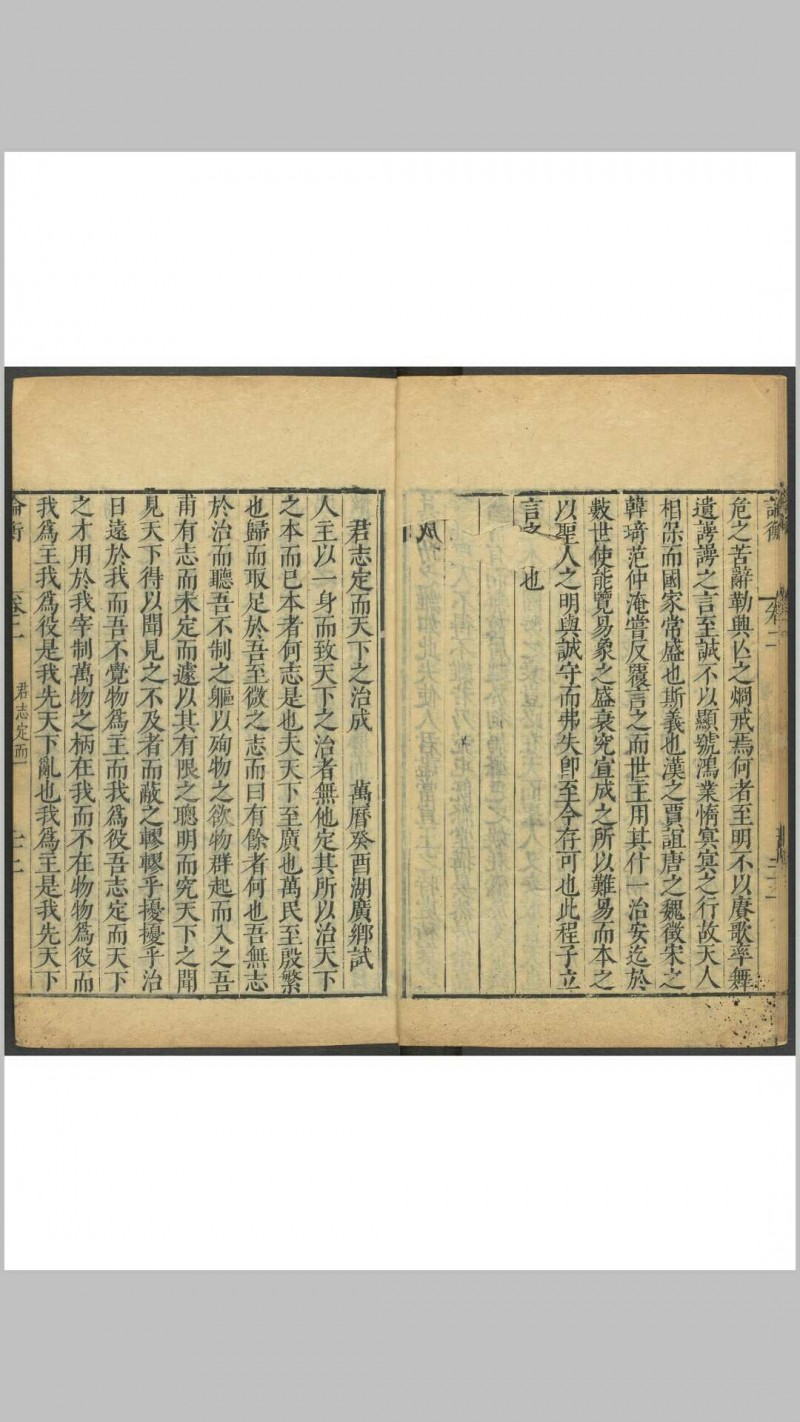 論衡 卷二
危之苦辭勒興亾之烱戒焉何者至明不以賡歌率舞
遺謣謣之言至誠不以顯號鴻業惰冥冥之行故天人
相孚而國家常盛也斯義也漢之賈誼唐之魏徵宋之
韓琦范仲淹嘗反覆言之而世主用其什一治安迄於
數世使能覽易象之盛衰究宣成之所以難易而本之
以聖人之明與誠守而弗失卽至今存可也此程子立
言 也
君志定而天下之治成 萬曆癸酉湖廣鄉試
人主以一身而致天下之治者無他定其所以治天下
之本而已本者何志是也夫天下至廣也萬民至殷繁
也歸而取足於吾至微之志而曰有餘者何也吾無志
於治而聽吾不制之軀以殉物之欲物群起而入之吾
甫有志而未定而遽以其有限之聰明而究天下之聞
見天下得以聞見之不及者而蔽之轇轇乎擾擾乎治
日遠於我而吾不覺物爲主而我爲役吾志定而天下
之才用於我宰制萬物之柄在我而不在物物爲役而
我爲主我爲役是我先天下亂也我爲主是我先天下
論衡 卷二 君志定而